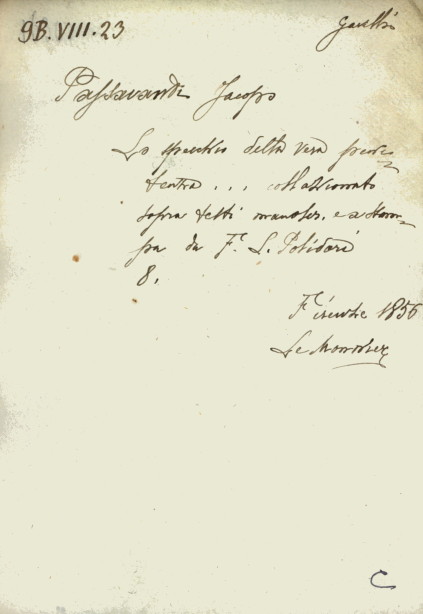 9B.VIII.23
Passavanti Jacopo
Lo specchio della vera peni=
tenza ... collazionato
sopra testi manoscr. e a stam=
pa da F. L. Polidori
8.
Firenze 1856
Le Monnier
C